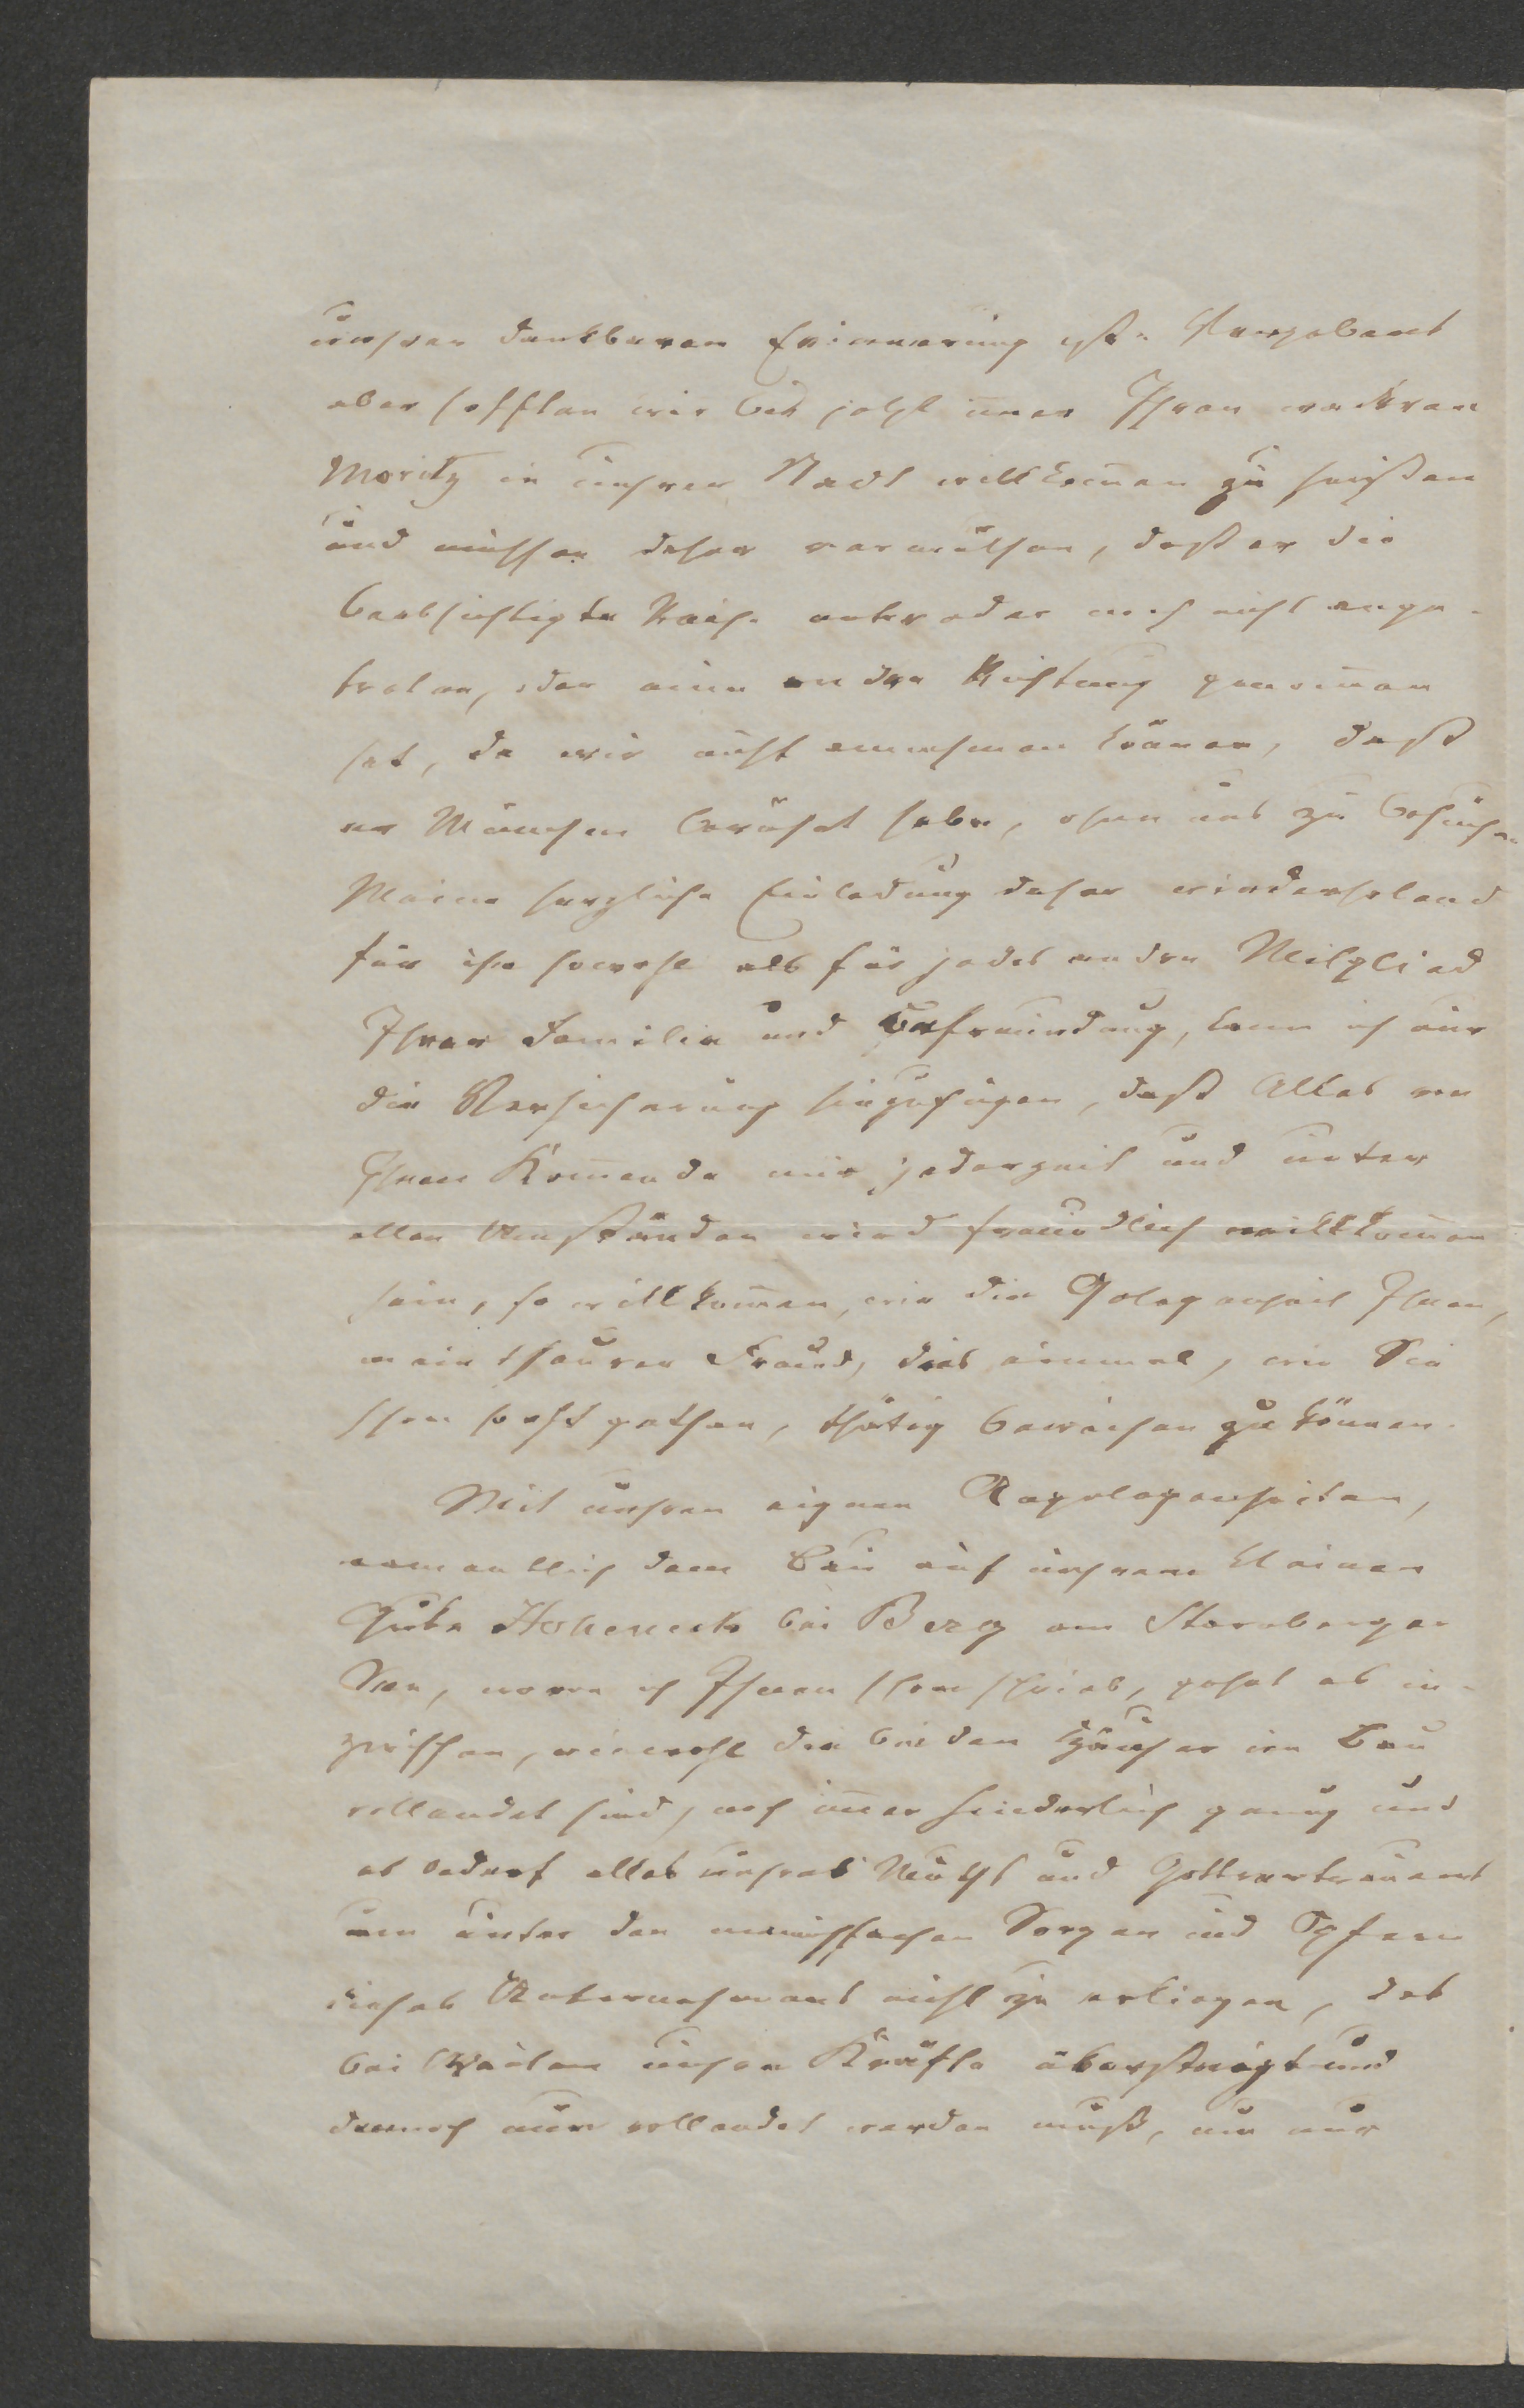 unsrer dankbaren Erinnerung ist. Vergebens
aber hofften wir bis jetzt immer Ihren wackren
Moritz in unsrer Stadt willkom̅en zu heißen
und müssen daher vermuthen, daß er die
beabsichtigte Reise entweder noch nicht ange-
treten, oder eine andre Richtung genom̅en
hat, da wir nicht annehmen können, daß
er München berührt habe, ohne uns zu besuchen.
Meine herzliche Einladung daher wiederholend
für ihn sowohl als für jedes andre Mitglied
Ihrer Familie und Befreundung, kann ich nur
die Versicherung hinzufügen, daß Alles von
Ihnen Kom̅ende mir jederzeit und unter
allen Umständen wird freundlich willkom̅en
sein, so willkom̅en, wie die Gelegenheit Ihnen,
mein theurer Freund, dies einmal, wie Sie
schon so oft gethan, thätig beweisen zu können.
Mit unsren eignen Angelegenheiten,
namentlich dem Bau auf unsrem kleinen
Gute Hoheneck bei Berg am Starnberger
See, wovon ich Ihnen schon schrieb, gehet es in-
zwischen, wiewohl die beiden Häuser im Bau
vollendet sind, noch im̅er hinderlich genug und
es bedarf alles unsres Muths und Gottvertrauens
um unter den mannichfachen Sorgen und Opfern
dieses Unternehmens nicht zu erliegen, das
bei Weitem unsre Kräfte übersteigt und
dennoch nun vollendet werden muß, um nur